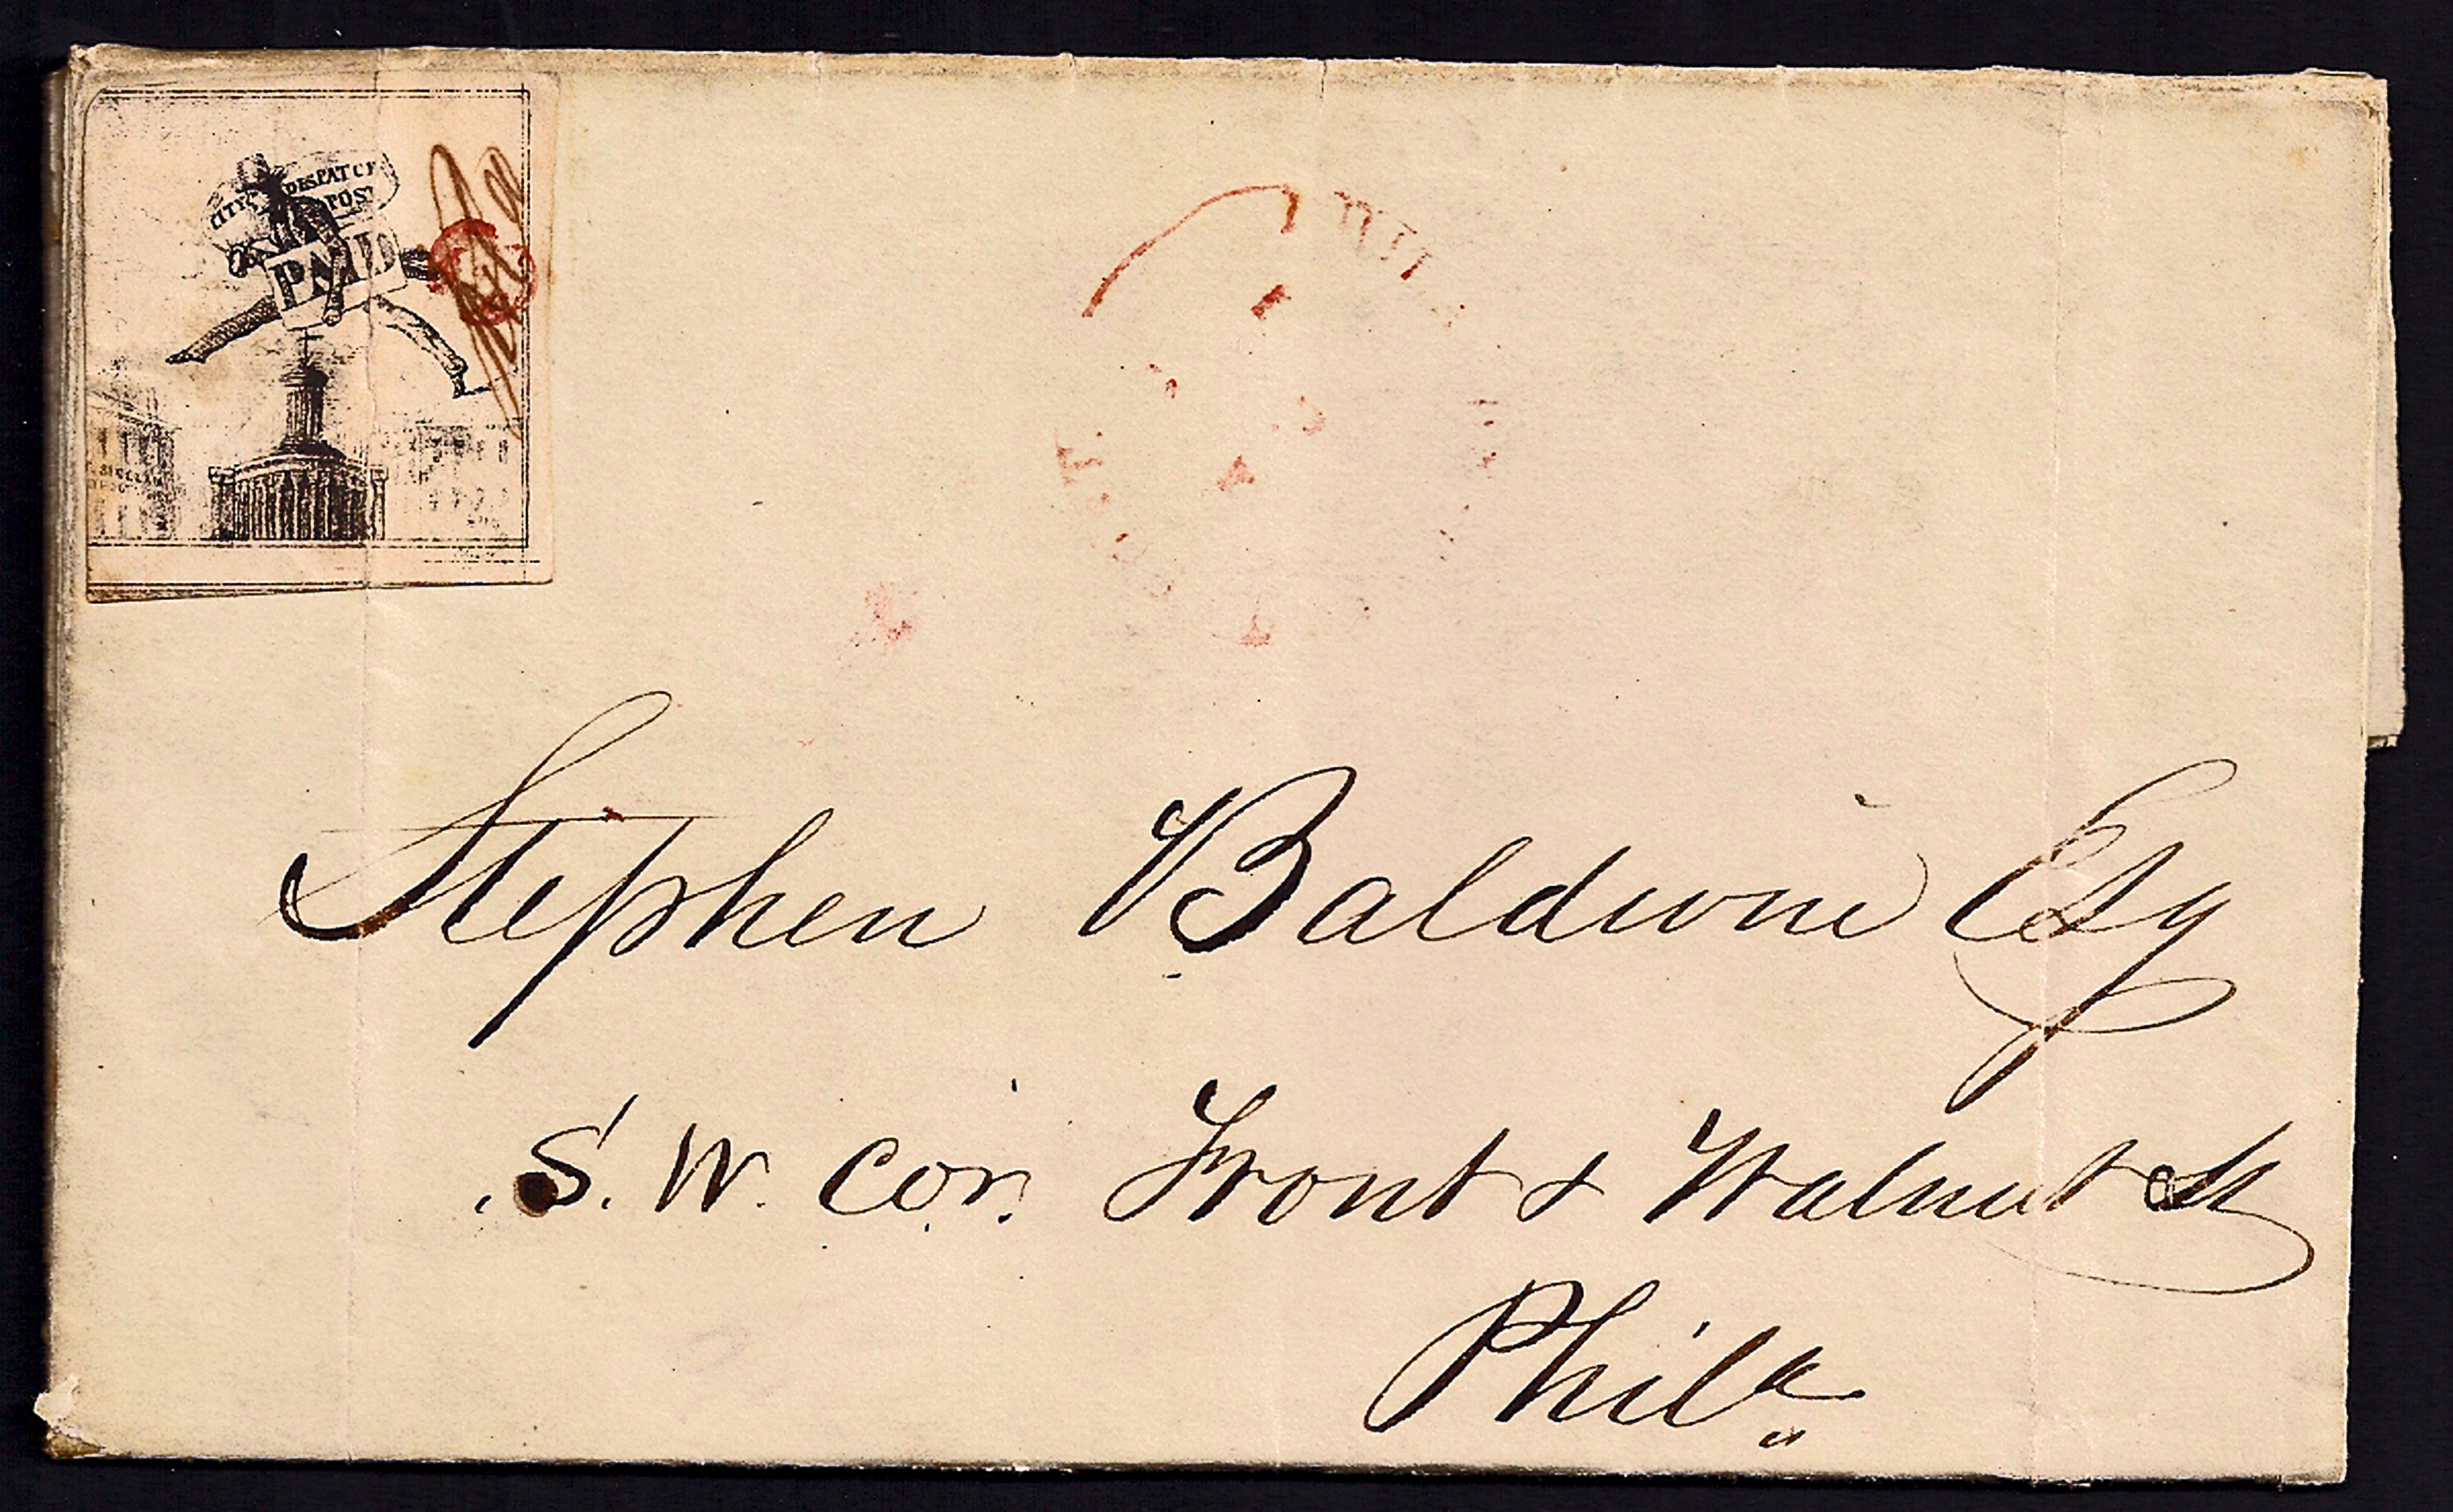 CITY DESPATCH
POST
PAID
Stephen Baldwin Esq
S. W. Cor. Front & Walnut St
Phila